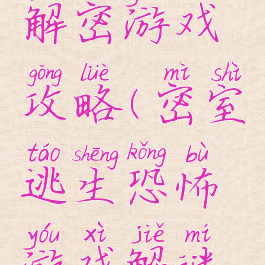 解密游戏
gōng lüè mì shì
攻略(密室
táo shēng kǒng bù
逃生恐怖
yóu xì jiě mí
游戏解谜